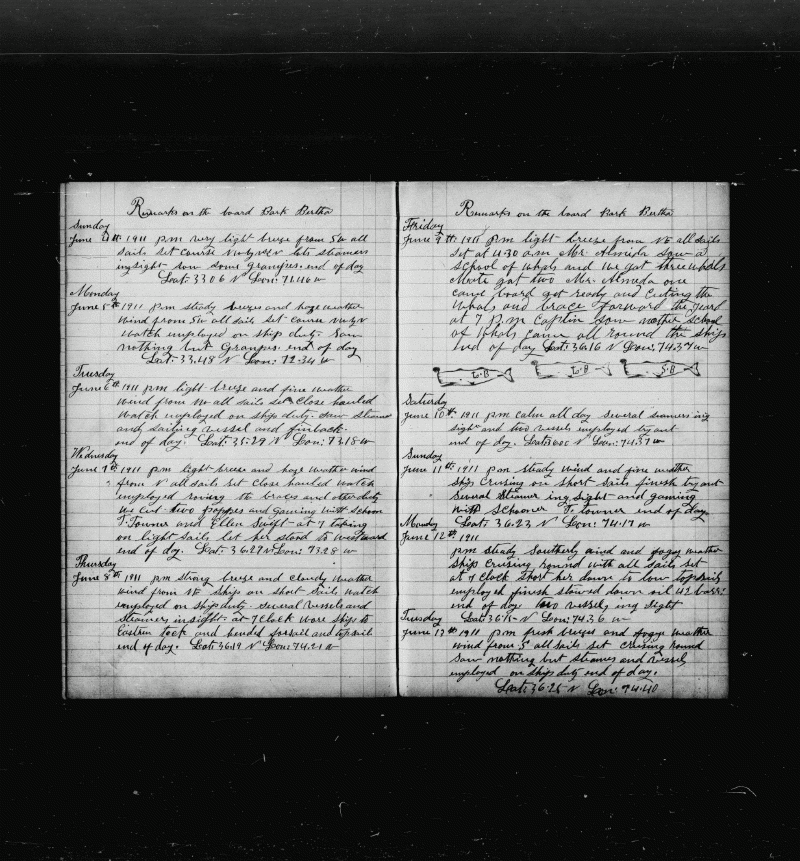 Remarks on the board Bark Bertha
Sunday
June 4th 1911 pm very light breze from SW all
sails set Course lots steamers
insight saw some grampuses. end of day
Lat: 33.06 N Lon: 71.46 w
Monday
June 5th 1911 pm steady brezes and haze weather
wind from SW all sail set course
watch employed on ship duty. Saw
nothing but Grampus end of day
Lat: 33.48 N Lon: 72.34 w
Tuesday
June 6th 1911 pm light breze and fine weather
wind from all sails set Close hauled
watch employed on ships duty. Saw steamer
and sailing vessel and finback.
end of day. Lat: 35.29 N Lon: 73.18 w
Wednesday
June 7th 1911 pm light breeze and haze weather wind
from N all sails set Close hauled watch
employed the braces and other duty
we cut two and Gaming with schoon
T. Towner and Ellen Swift at 7 taking
on light sails let her stood to westward
end of day. Lat: 36.27 N Lon: 73.28 w
Thursday
June 8th 1911 pm strong breze and cloudy weather
wind from NE ship on short sails watch
employed on ships duty. several vessels and
steamers insight. at 7 Clock wore ship to
Eastern tack and topsail
end of day. Lat: 36.19 N Lon: 74.21 w
Remarks on the board Bark Bertha
Friday
June 9th 1911 pm light breeze from NE all sails
set at 4.30 am Mr. Almeida saw a
school of whals and we got three whals
Mate got two Mr. Almeda one
came board got ready and Cuting the
whals and brace forward the yard
at 7 P.m Captin saw nother school
of whals came all round the ship
end of day Lat: 36.16 N Lon: 74.37 w
L.B
L.B
S.B
Saturday
June 10th 1911 pm calm all day several seamers ing
sight and two vessels employed by
end of day. Lon: 74.37 w
Sunday
June 11th 1911 pm steady wind and fine weather
ship Crusing on short sails finish try out
Several Steamer ing sight and gaming
with Schooner T. towner end of day.
Monday Lat: 36.23 N Lon: 74.17 w
June 12th 1911
pm steady Southerly wind and fogge weather
ship crusing round with all sails set
at 7 Clock Short her down to low topsails
employed finish slowed down oil 42
end of day two vessels ing sight
Tuesday Lat: 36.15 N Lon: 74.36 w
June 13th 1911 pm fresh brezes and fogge weather
wind from S all sails set Crusing round
saw nothing but steames and vessels
employed on ships duty end of day.
Lat: 36.25 N Lon: 74.40